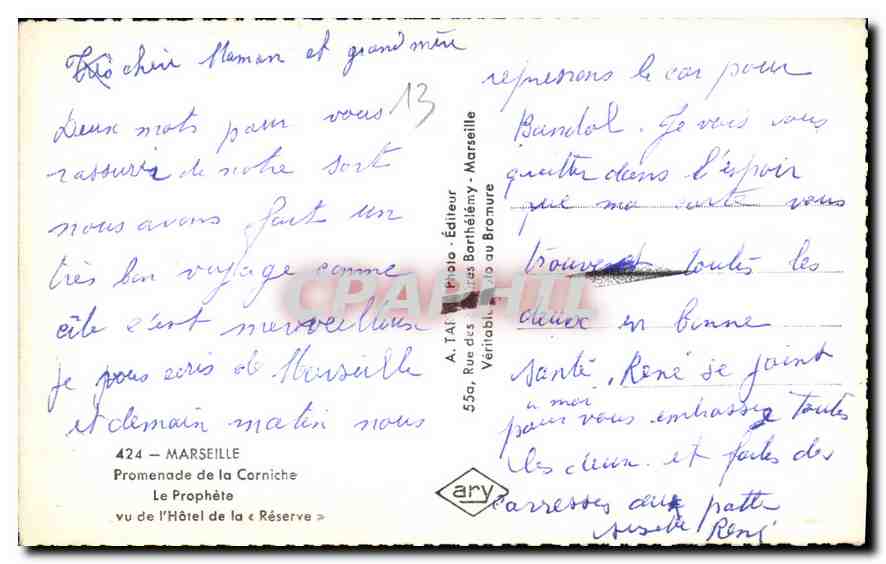 chère Maman et grand mère
Deux mots pour vous 13
rassurer de notre sort
nous avons fait un
très bon voyage comme
c'est merveilleux
je vous ecris de Marseille
et demain matin nous
424 — MARSEILLE
Promenade de la Corniche
Le Prophète
vu de l'Hôtel de la « Réserve »
A. TAR Photo - Éditeur
55a, Rue des Barthélémy - Marseille
Véritable Photo au Bromure
ary
CPAPHIL
reprenons le car pour
Bandol. Je vais vous
quitter dans l'espoir
que ma carte vous
trouve toutes les
deux en bonne
santé, René se joint
a moi
pour vous embrasser toutes
les deux et faites des
carresses aux
René